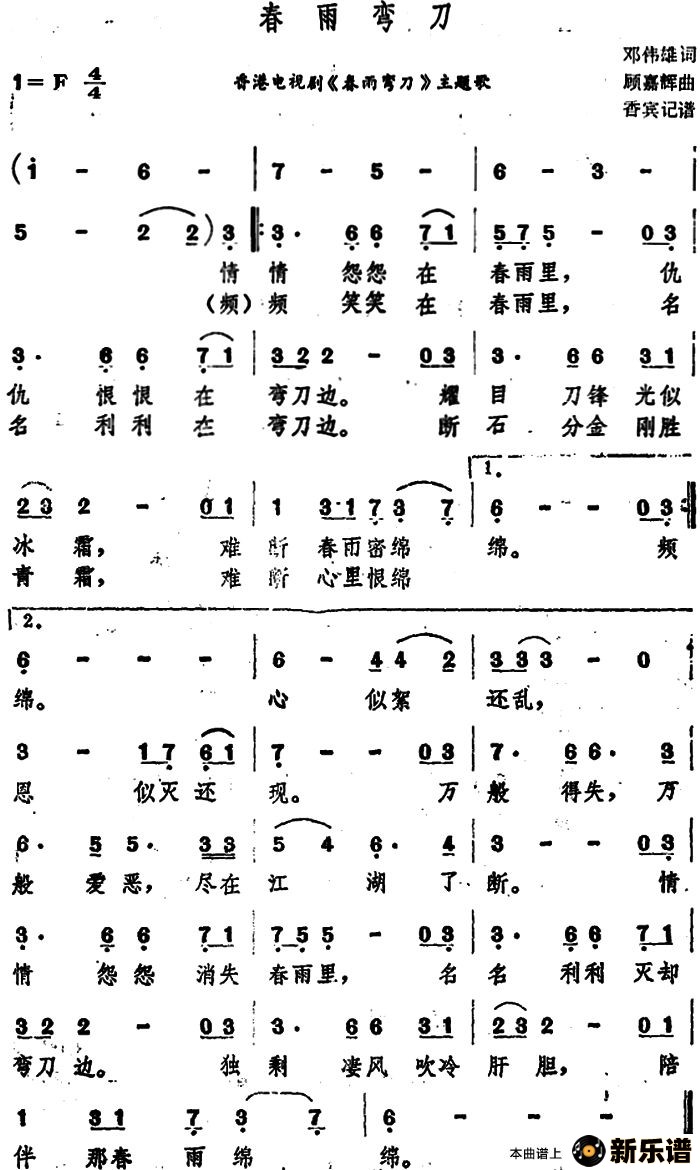 春雨弯刀
邓伟雄词
1=F 4/4 香港电视剧《春雨弯刀》主题歌 顾嘉辉曲
香宾记谱
(i - 6 - | 7 - 5 - | 6 - 3 - |
5 - 2 2) 3 |: 3· 6 6 7 1 | 5 7 5 - 0 3 |
情 情 怨怨 在 春雨里, 仇
(频) 频 笑笑 在 春雨里, 名
3· 6 6 7 1 | 3 2 2 2 - 0 3 | 3· 6 6 3 1 |
仇 恨 恨 在 弯刀边。 耀 目 刀锋 光似
名 利 利 在 弯刀边。 断 石 分金 刚胜
1.
2 3 2 - 0 1 | 1 3 1 7 3 7 | 6 - - 0 3 :|
冰 霜, 难 断 春雨密绵 绵。 频
青 霜, 难 断 心里恨绵
2.
6 - - - | 6 - 4 4 2 | 3 3 3 - 0 |
绵。 心 似絮 还乱,
3 - 1 7 6 1 | 7 - - 0 3 | 7· 6 6· 3 |
恩 似灭还 现。 万 般 得失, 万
6· 5 5· 3 3 | 5 4 6· 4 | 3 - - 0 3 |
般 爱恶, 尽在 江 湖 了 断。 情
3· 6 6 7 1 | 7 5 5 - 0 3 | 3· 6 6 7 1 |
情 怨 怨 消失 春雨里, 名 名 利利 灭却
3 2 2 - 0 3 | 3· 6 6 3 1 | 2 3 2 - 0 1 |
弯刀边。 独 剩 凄风 吹冷 肝 胆, 陪
1 3 1 7 3 7 | 6 - - -
伴 那春 雨 绵 绵。 本曲谱上 新乐谱